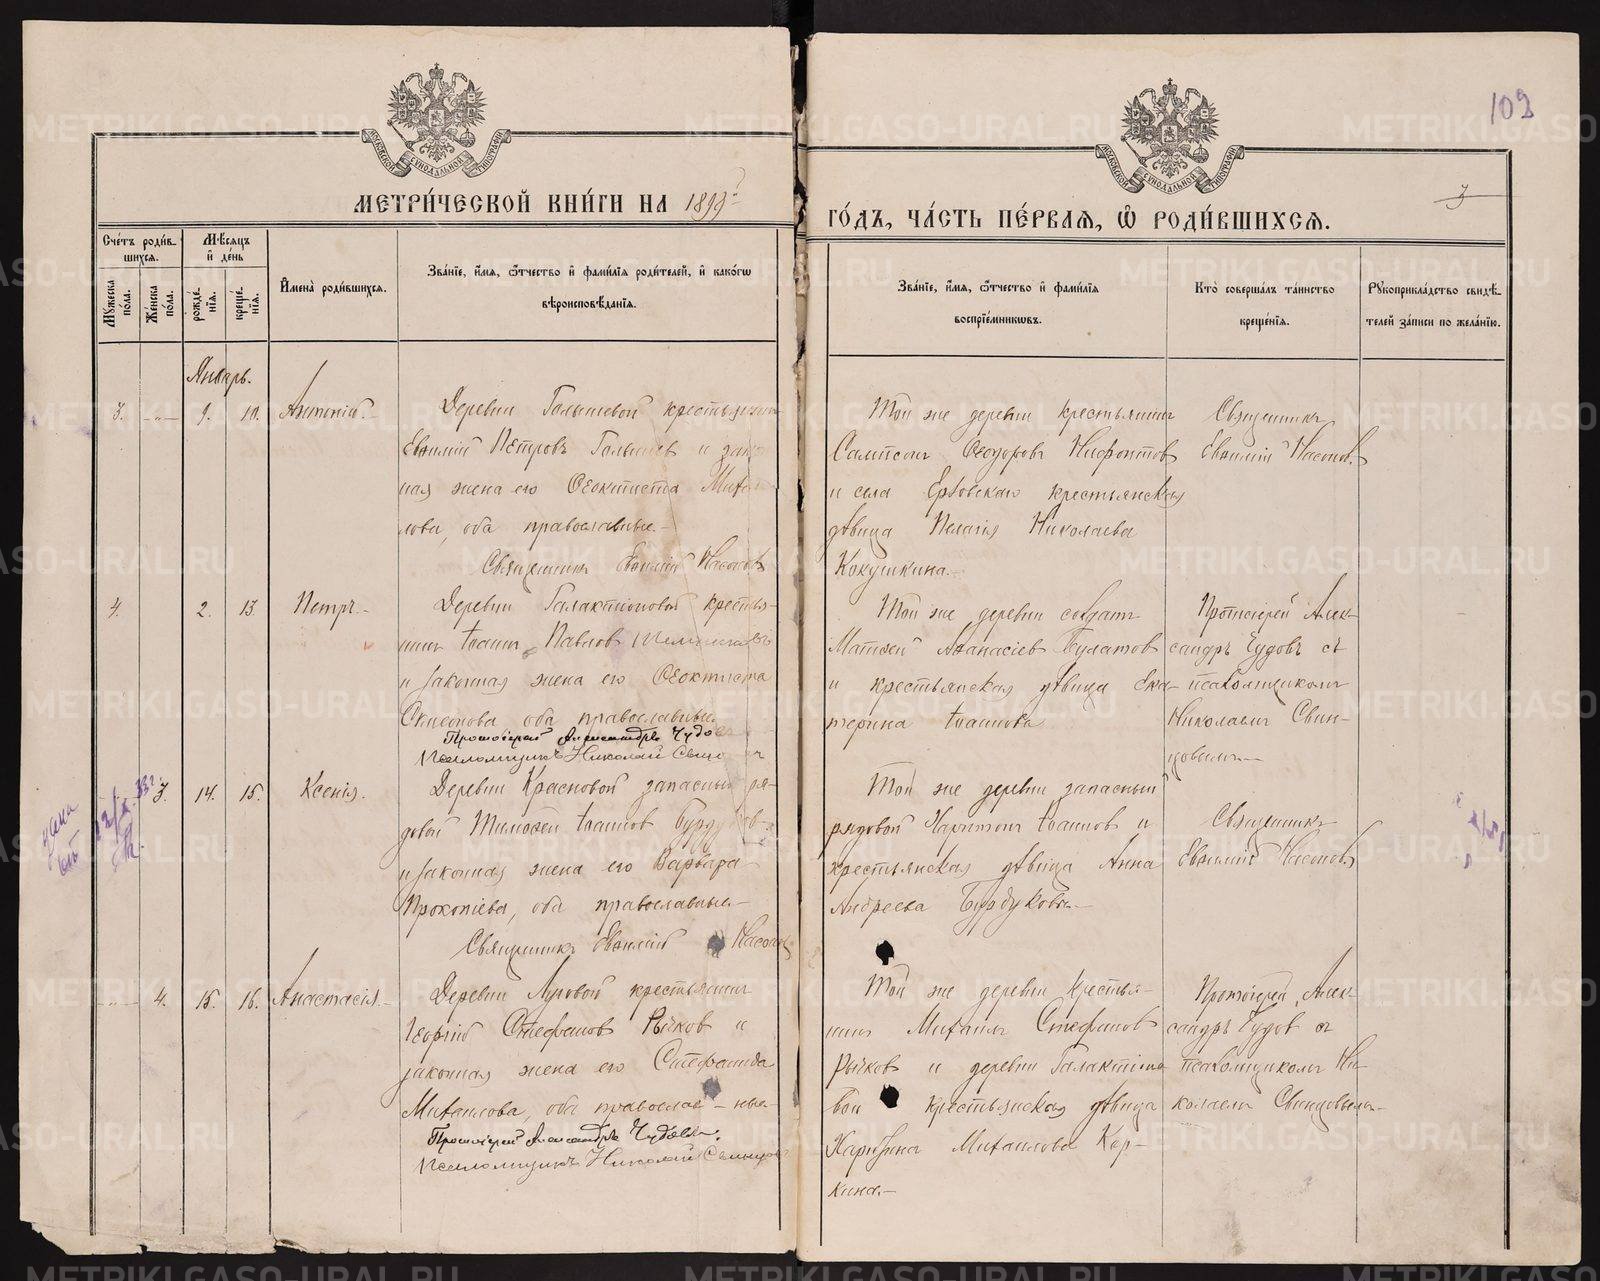 102
МОСКОВСКОЙ СУНОДАЛЬНОЙ ТИПОГРАФИИ
МОСКОВСКОЙ СУНОДАЛЬНОЙ ТИПОГРАФИИ
МЕТРИ́ЧЕСКОЙ КНИ́ГИ НА
ГО́ДЪ, ЧА́СТЬ ПЕ́РВАЯ, Ѽ РОДИ́ВШИХСЯ.
3
Сче́тъ роди́в-
шихся.
Мѣ́сяцъ
и҆ де́нь
Му́жеска
по́ла.
Же́нска
по́ла.
рожде́-
нїя.
креще́-
нїя.
И҆мена̀ роди́вшихся.
Зва́нїе, и҆́мя, ѻ҆́тчество и҆ фами́лїя роди́телей, и҆ како́гѡ
вѣроисповѣ́данїя.
Зва́нїе, и҆́мя, ѻ҆́тчество и҆ фами́лїя
воспрїе́мникѡвъ.
Кто̀ соверша́лъ та́инство
креще́нїя.
Рукоприкла́дство свидѣ́-
телей за́писи по жела́нїю.
Январь.
3. -„- 9. 10. Антоній.
Деревни Голышевой крестьянинъ
Евѳимій Петровъ Голышев и закон
ная жена его Ѳеоктиста Михаи
лова, оба православные.-
Священникъ Евѳимій Насоновъ
Той же деревни крестьянинъ
Сампсонъ Ѳеодоровъ Нифонтов
и села крестьянская
дѣвица Пелагія Николаева
Кокушкина.-
Священникъ
Евѳимій Насонов.
4. 2. 13. Петръ.-
Деревни Галактіоновой крестья-
нинъ Іоаннъ Павлов
и законная жена его Ѳеоктиста
Симеонова, оба православные.
Протоіерей Александръ Чудов
Псаломщикъ Николай
Той же деревни солдатъ
Матѳей Аѳанасіев Булатов
и крестьянская дѣвица Ека-
терина Іоаннова
Протоіерей Алек-
сандръ Чудовъ съ
псаломщикомъ
Николаемъ Свин-
цовымъ.-
3. 14. 15. Ксенія.
Деревни Красновой запасный ря-
довой Тимоѳей Іоаннов Бурдуков
и законная жена его Варвара
Прокопіева, оба православные.-
Священникъ Евѳимій Насонов
Той же деревни запасный
рядовой Харитонъ Іоаннов и
крестьянская дѣвица Анна
Андреева Бурдукова.-
Священникъ
Евѳимій Насонов
-„- 4. 15. 16. Анастасія.-
Деревни Луговой крестьянинъ
Георгій Стефанов Рычков и
законная жена его Стефанида
Михаилова, оба православ-ные-
Протоіерей Александръ Чудовъ.
Псаломщикъ Николай Свинцов
Той же деревни крестья-
нинъ Михаилъ Стефанов
Рычков и деревни Галактіоно
вой крестьянская дѣвица
Михаилова Кор-
кина.-
Протоіерей Алек-
сандръ Чудов съ
псаломщикомъ Ни-
колаемъ Свинцовымъ.-
METRIKI.GASO-URAL.RU